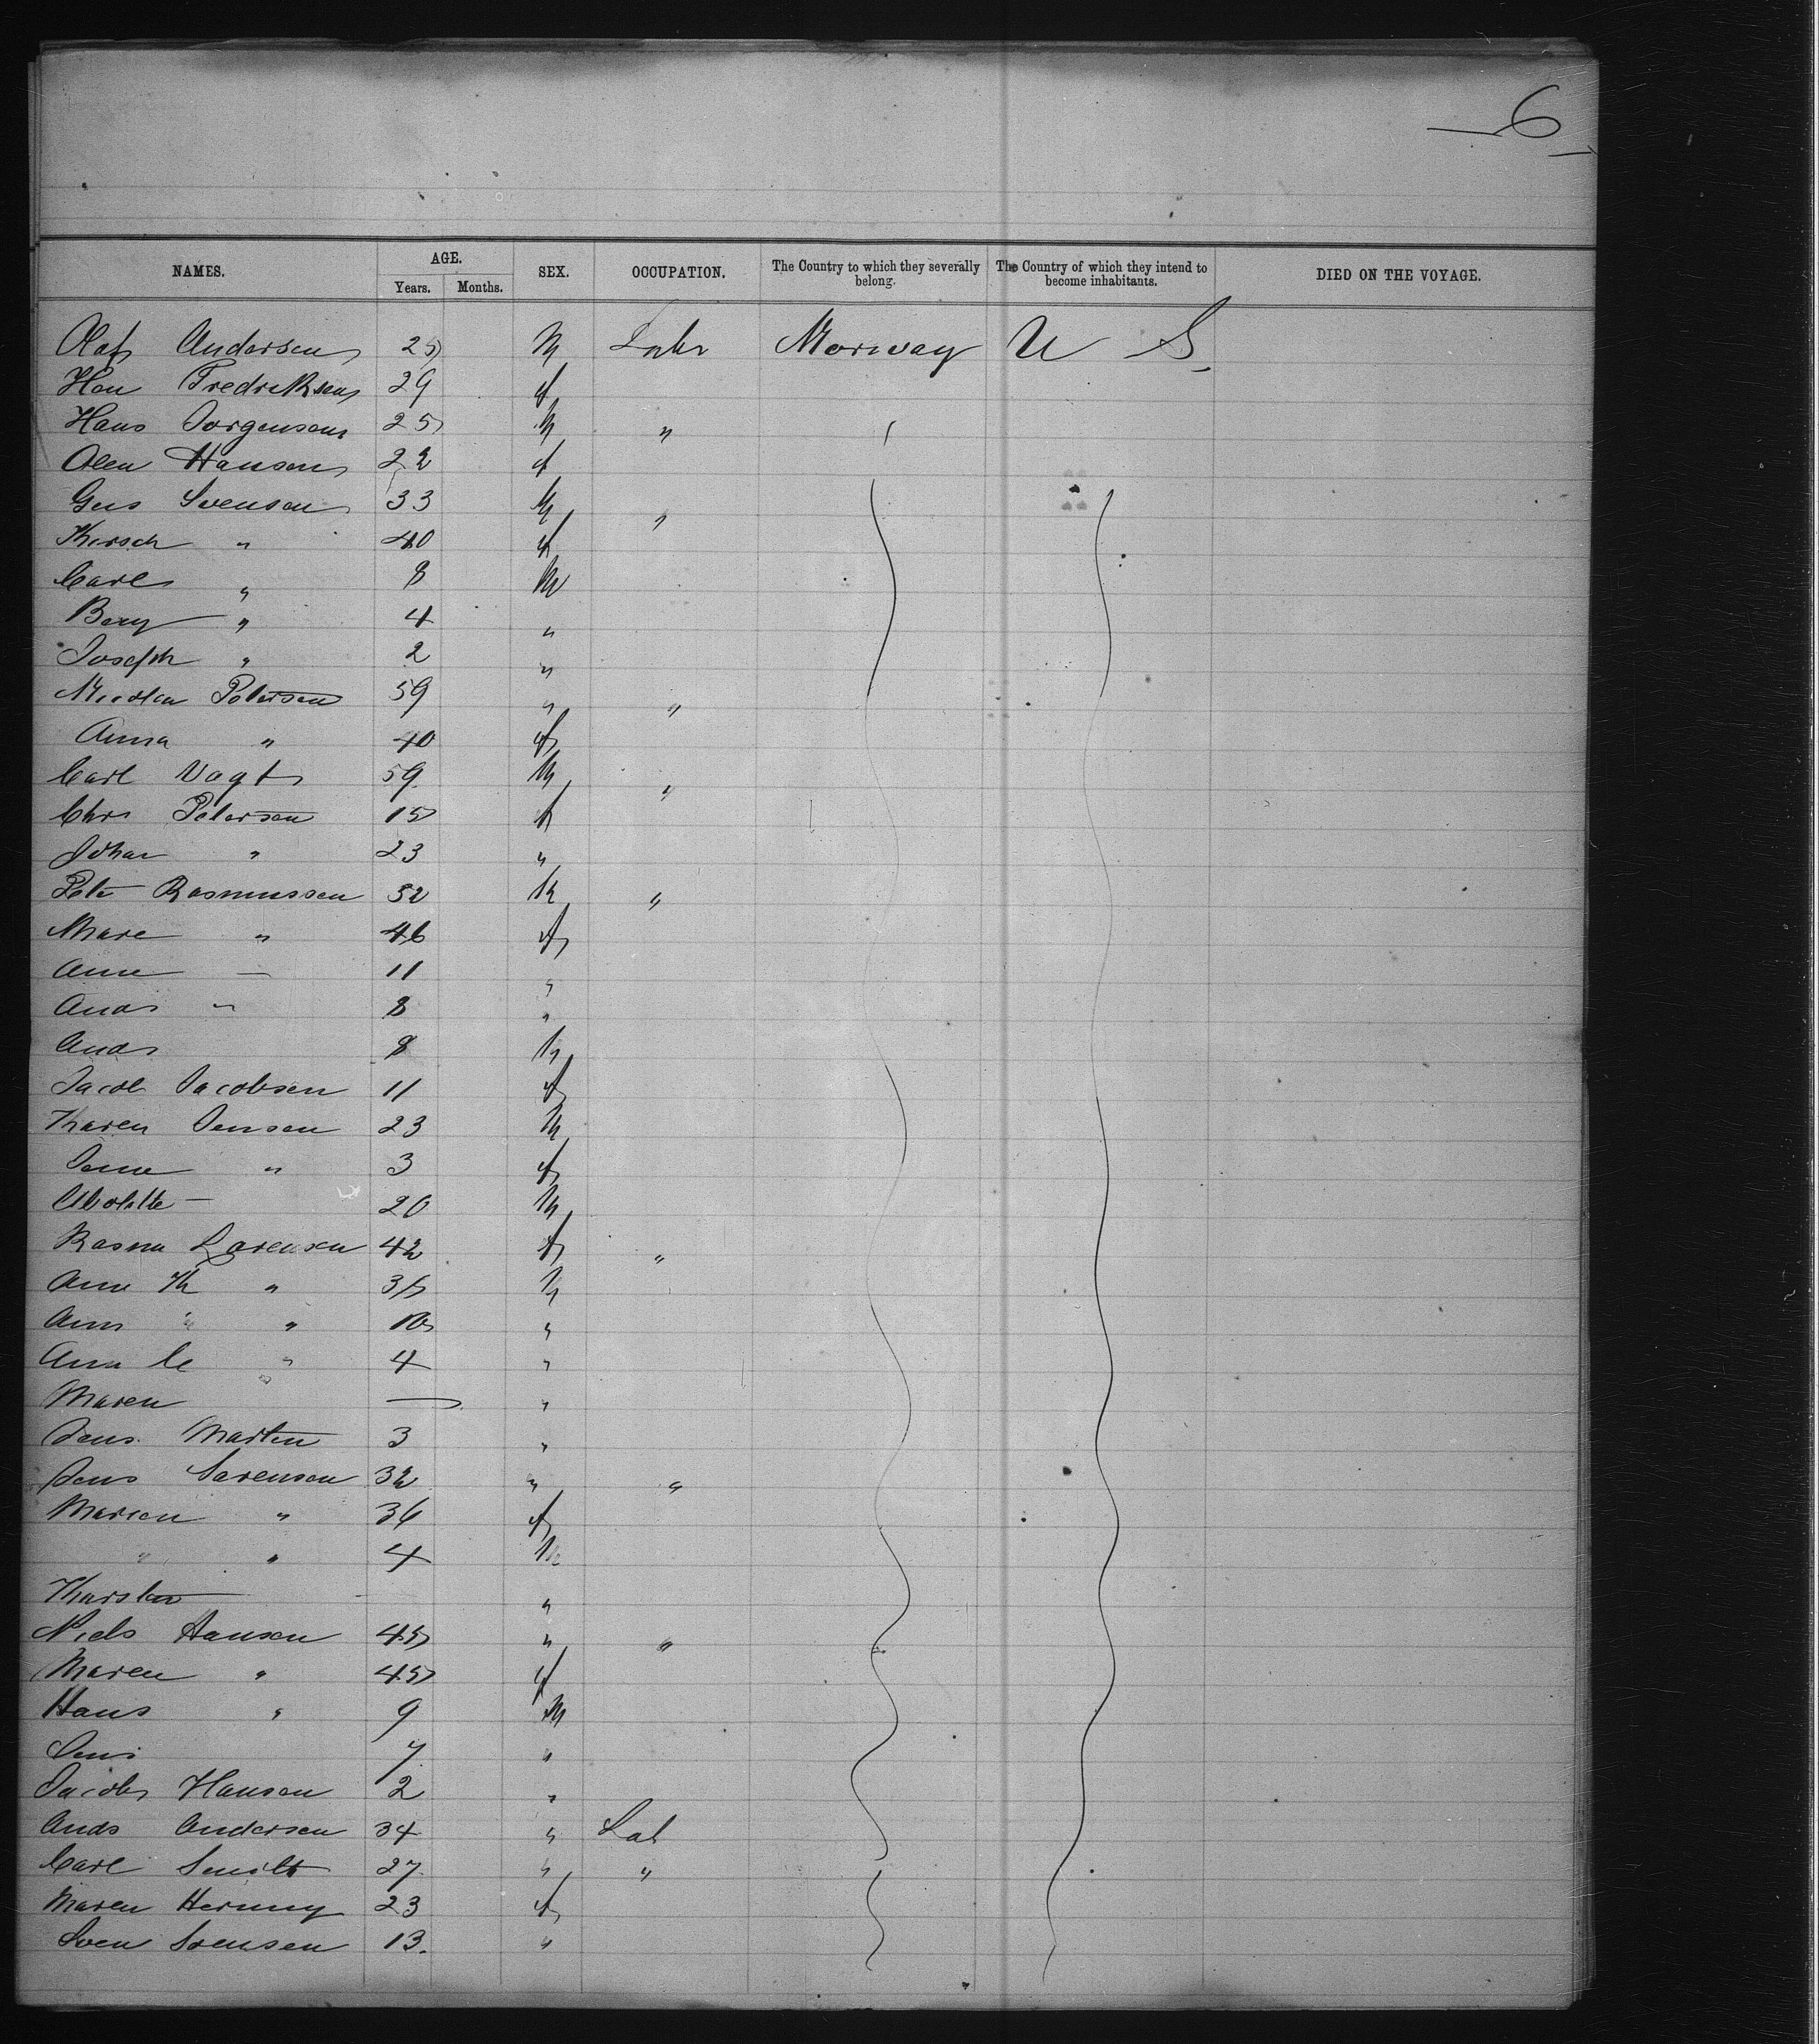 6
NAMES. AGE. SEX. OCCUPATION. The Country to which they severally belong. The Country of which they intend to become inhabitants. DIED ON THE VOYAGE.
Years. Months.
Olaf Andersen 25 M Labr Norway U S
Fredriksen 29 f
Hans Jorgensen 25 M "
Olen Hansen 22 f
Gus Svensen 33 M "
" 40 f
Carl " 8 M
" 4 "
Joseph " 2 "
Petersen 59 " "
Anna " 40 f
Carl Vogt 59 M "
Chrs Petersen 15 f
Johan " 23 "
Petr Rasmussen 52 M "
Mare " 46 f
Anne — 11 "
Ands " 8 "
Ands 8 M
Jacob Jacobsen 11 f
Karen Jensen 23 M
" 3 f
— 20 M
Rasmu Lorensen 42 f "
Ane K " 36 M
Ann " " "
Ann C " 4 "
Maren — "
Jens Marten 3 "
Jens Sorensen 32 " "
Maren " 36 f
" " 4 M
Karsten "
Niels Hansen 45 " "
Maren " 45 f
Hans " 9 M
Jens 7 "
Jacob Hansen 2 "
Ands Andersen 34 " Lab
Carl 27 " "
Maren 23 f
Sven Svensen 13. "